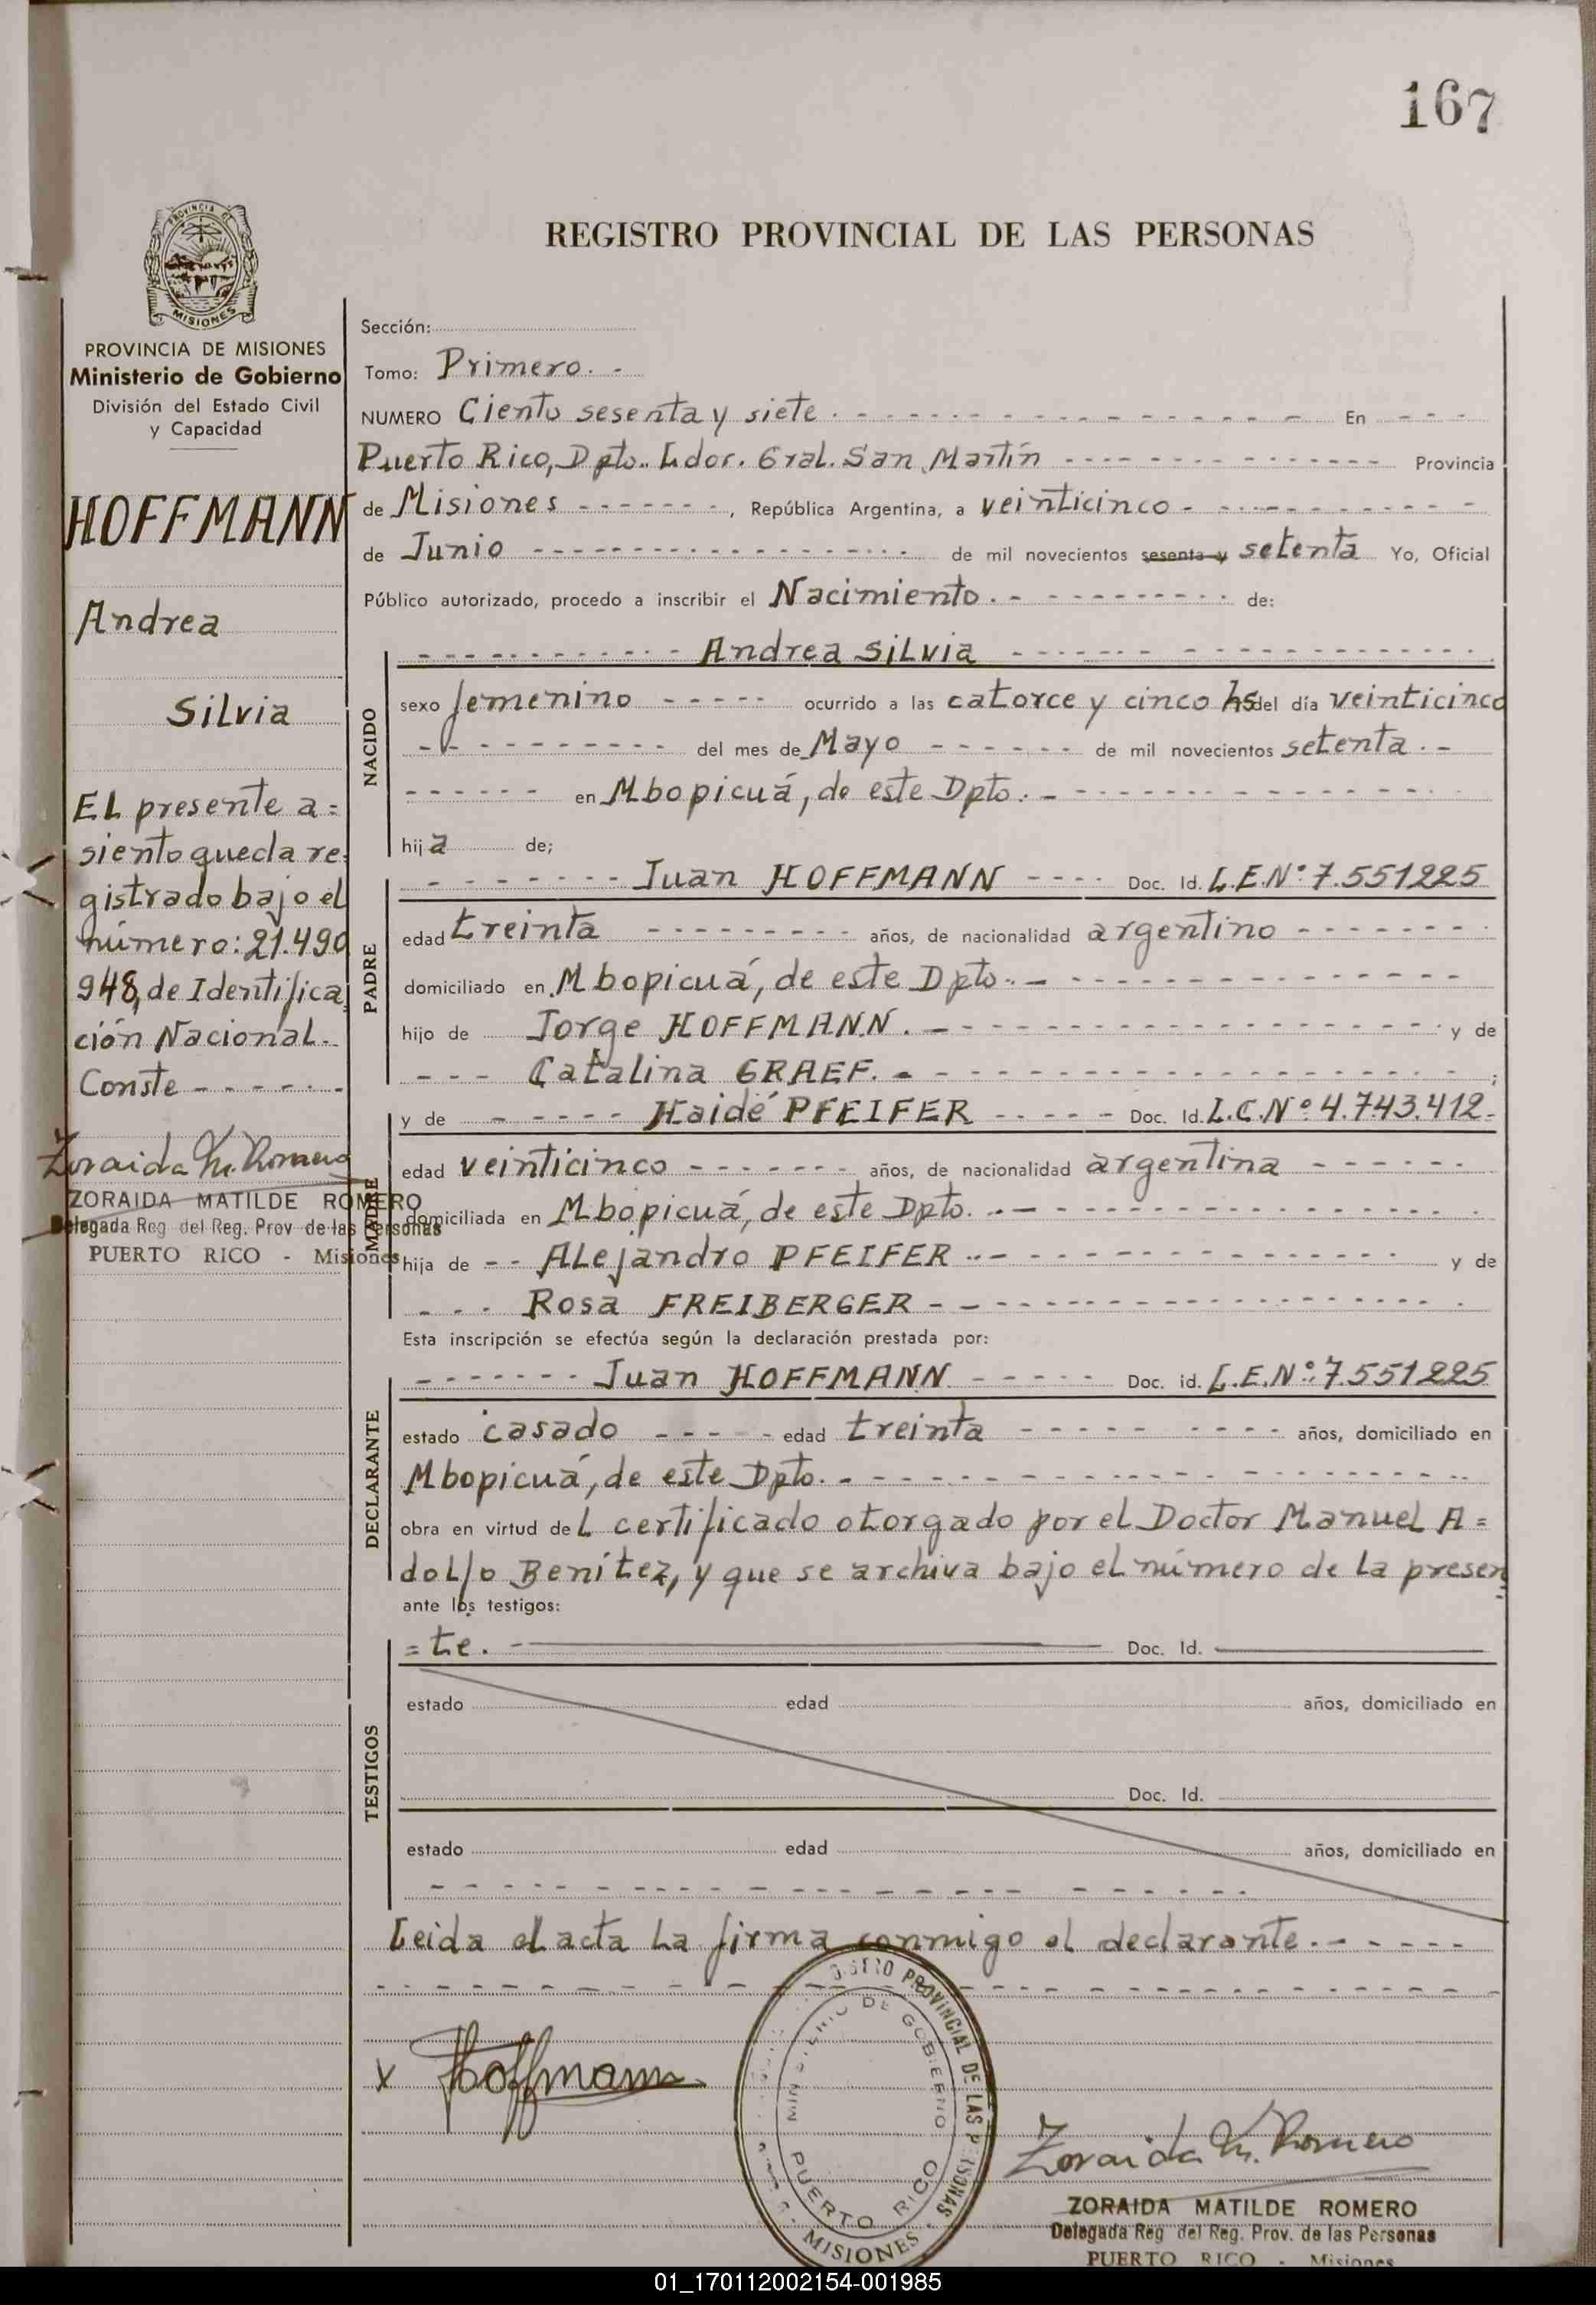 167
REGISTRO PROVINCIAL DE LAS PERSONAS
PROVINCIA DE MISIONES
Ministerio de Gobierno
División del Estado Civil
y Capacidad
HOFFMANN
Andrea
Silvia
El presente a=
siento queda re=
gistrado bajo el
número: 21.490
948, de Identifica
ción Nacional.-
Conste - - - - - -
Zoraida M. Romero
ZORAIDA MATILDE ROMERO
Delegada Reg del Reg. Prov de las Personas
PUERTO RICO - Misiones
Sección:
Tomo: Primero. -
NUMERO Ciento sesenta y siete. - - - - En - - -
Puerto Rico, Dpto. Ldor. Gral. San Martín - - - - Provincia
de Misiones - - - - , República Argentina, a veinticinco - - - -
de Junio - - - - de mil novecientos sesenta y setenta Yo, Oficial
Público autorizado, procedo a inscribir el Nacimiento. - - - - de:
NACIDO
- - - - Andrea Silvia - - - -
sexo femenino - - - - ocurrido a las catorce y cinco hs del día veinticinco
- - - - del mes de Mayo - - - - de mil novecientos setenta. -
- - - - en Mbopicuá, de este Dpto. - - - -
hija de;
PADRE
- - - - Juan HOFFMANN - - - - Doc. Id. L.E.Nº 7.551225
edad treinta - - - - años, de nacionalidad argentino - - - -
domiciliado en Mbopicuá, de este Dpto. - - - -
hijo de Jorge HOFFMANN. - - - - y de
- - - Catalina GRAEF. - - - - ;
MADRE
y de - - - - Haidé PFEIFER - - - - Doc. Id. L.C.Nº 4.743.412-
edad veinticinco - - - - años, de nacionalidad argentina - - - -
domiciliada en Mbopicuá, de este Dpto. - - - -
hija de - - Alejandro PFEIFER - - - - y de
- - - Rosa FREIBERGER - - - -
Esta inscripción se efectúa según la declaración prestada por:
DECLARANTE
- - - - Juan HOFFMANN - - - - Doc. id. L.E.Nº: 7.551225
estado casado - - - - edad treinta - - - - años, domiciliado en
Mbopicuá, de este Dpto. - - - -
obra en virtud del certificado otorgado por el Doctor Manuel A=
dolfo Benítez, y que se archiva bajo el número de la presen
ante los testigos:
TESTIGOS
=te. - Doc. Id.
estado edad años, domiciliado en
Doc. Id.
estado edad años, domiciliado en
Leida el acta la firma conmigo el declarante. - - - -
x Hoffmann
REGISTRO PROVINCIAL DE LAS PERSONAS
MINISTERIO DE GOBIERNO
PUERTO RICO
MISIONES
Zoraida M. Romero
ZORAIDA MATILDE ROMERO
Delegada Reg del Reg. Prov. de las Personas
PUERTO RICO - Misiones
01_170112002154-001985